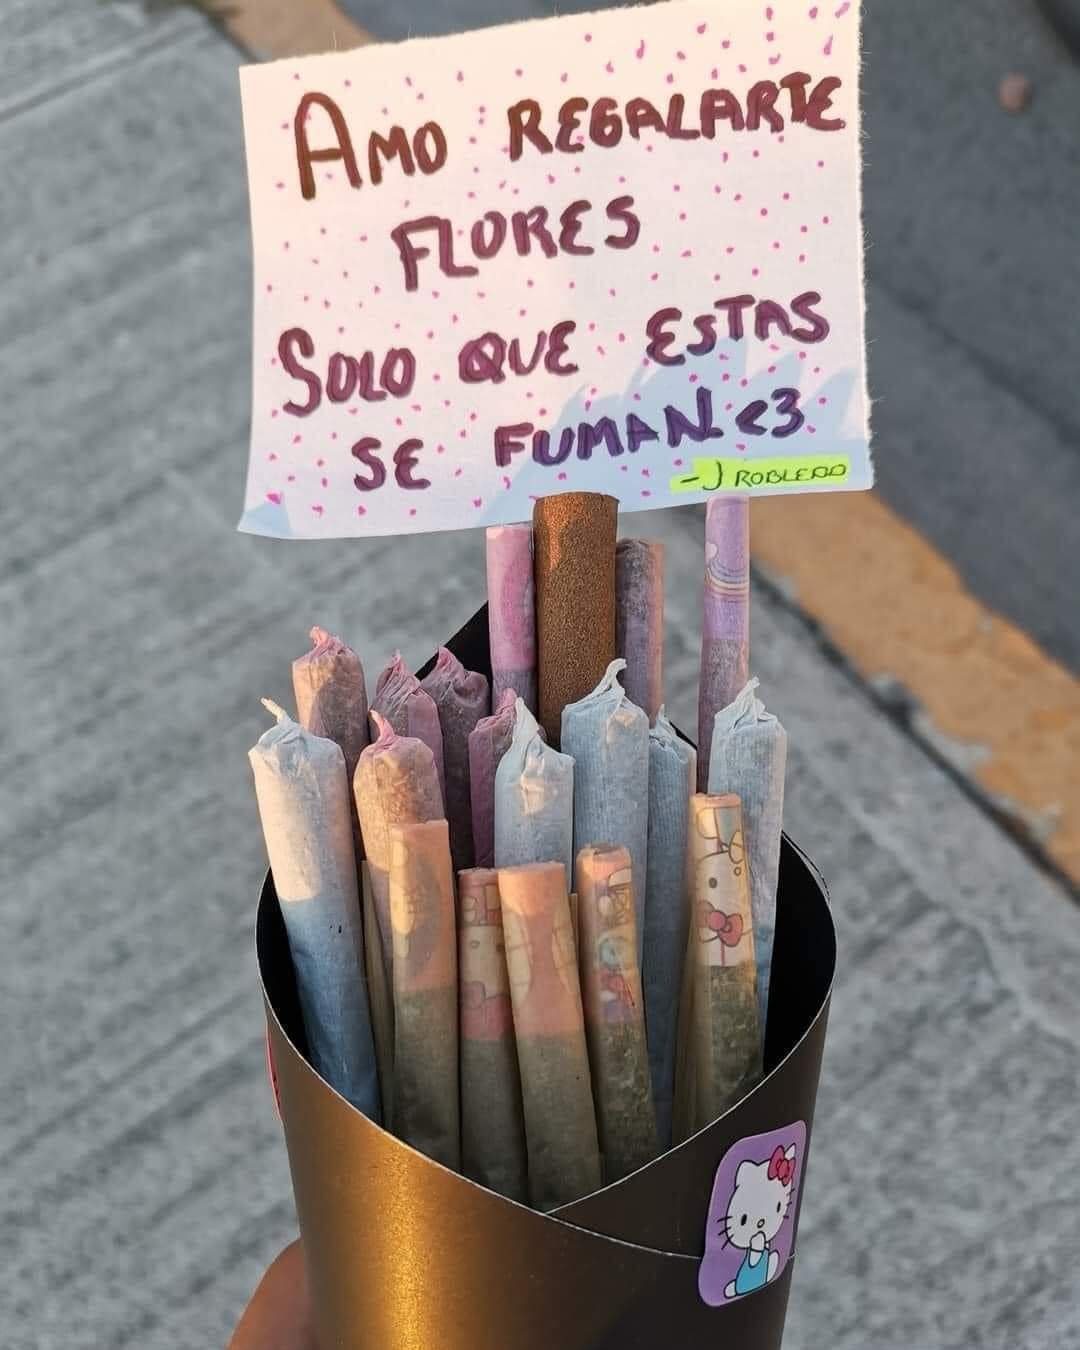 AMO REGALARTE
FLORES
SOLO QUE ESTAS
SE FUMAN <3
-J ROBLERO